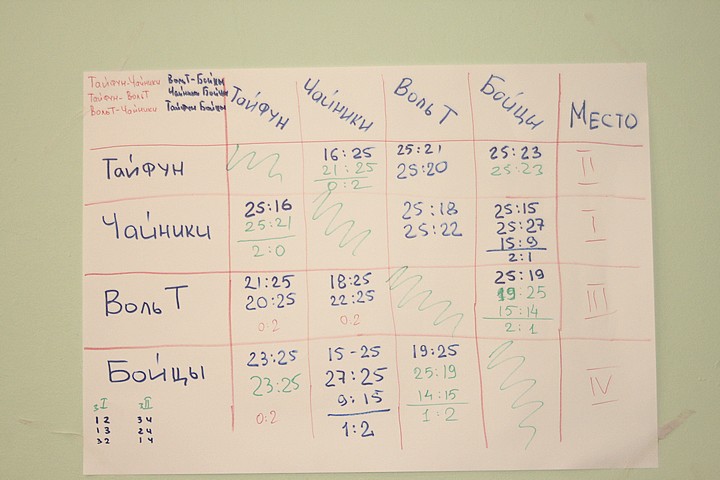 Тайфун-Чайники
Тайфун-ВольТ
ВольТ-Чайники
ВольТ-Бойцы
Чайники Бойцы
Тайфун Бойцы
Тайфун Чайники ВольТ Бойцы Место
Тайфун
16:25
21:25
0:2
25:21
25:20
25:23
25:23
II
Чайники
25:16
25:21
2:0
25:18
25:22
25:15
25:27
15:9
2:1
I
ВольТ
21:25
20:25
0:2
18:25
22:25
0:2
25:19
19:25
15:14
2:1
III
Бойцы
23:25
23:25
0:2
15-25
27:25
9:15
1:2
19:25
25:19
14:15
1:2
IV
I II
1 2 3 4
1 3 2 4
3 2 1 4